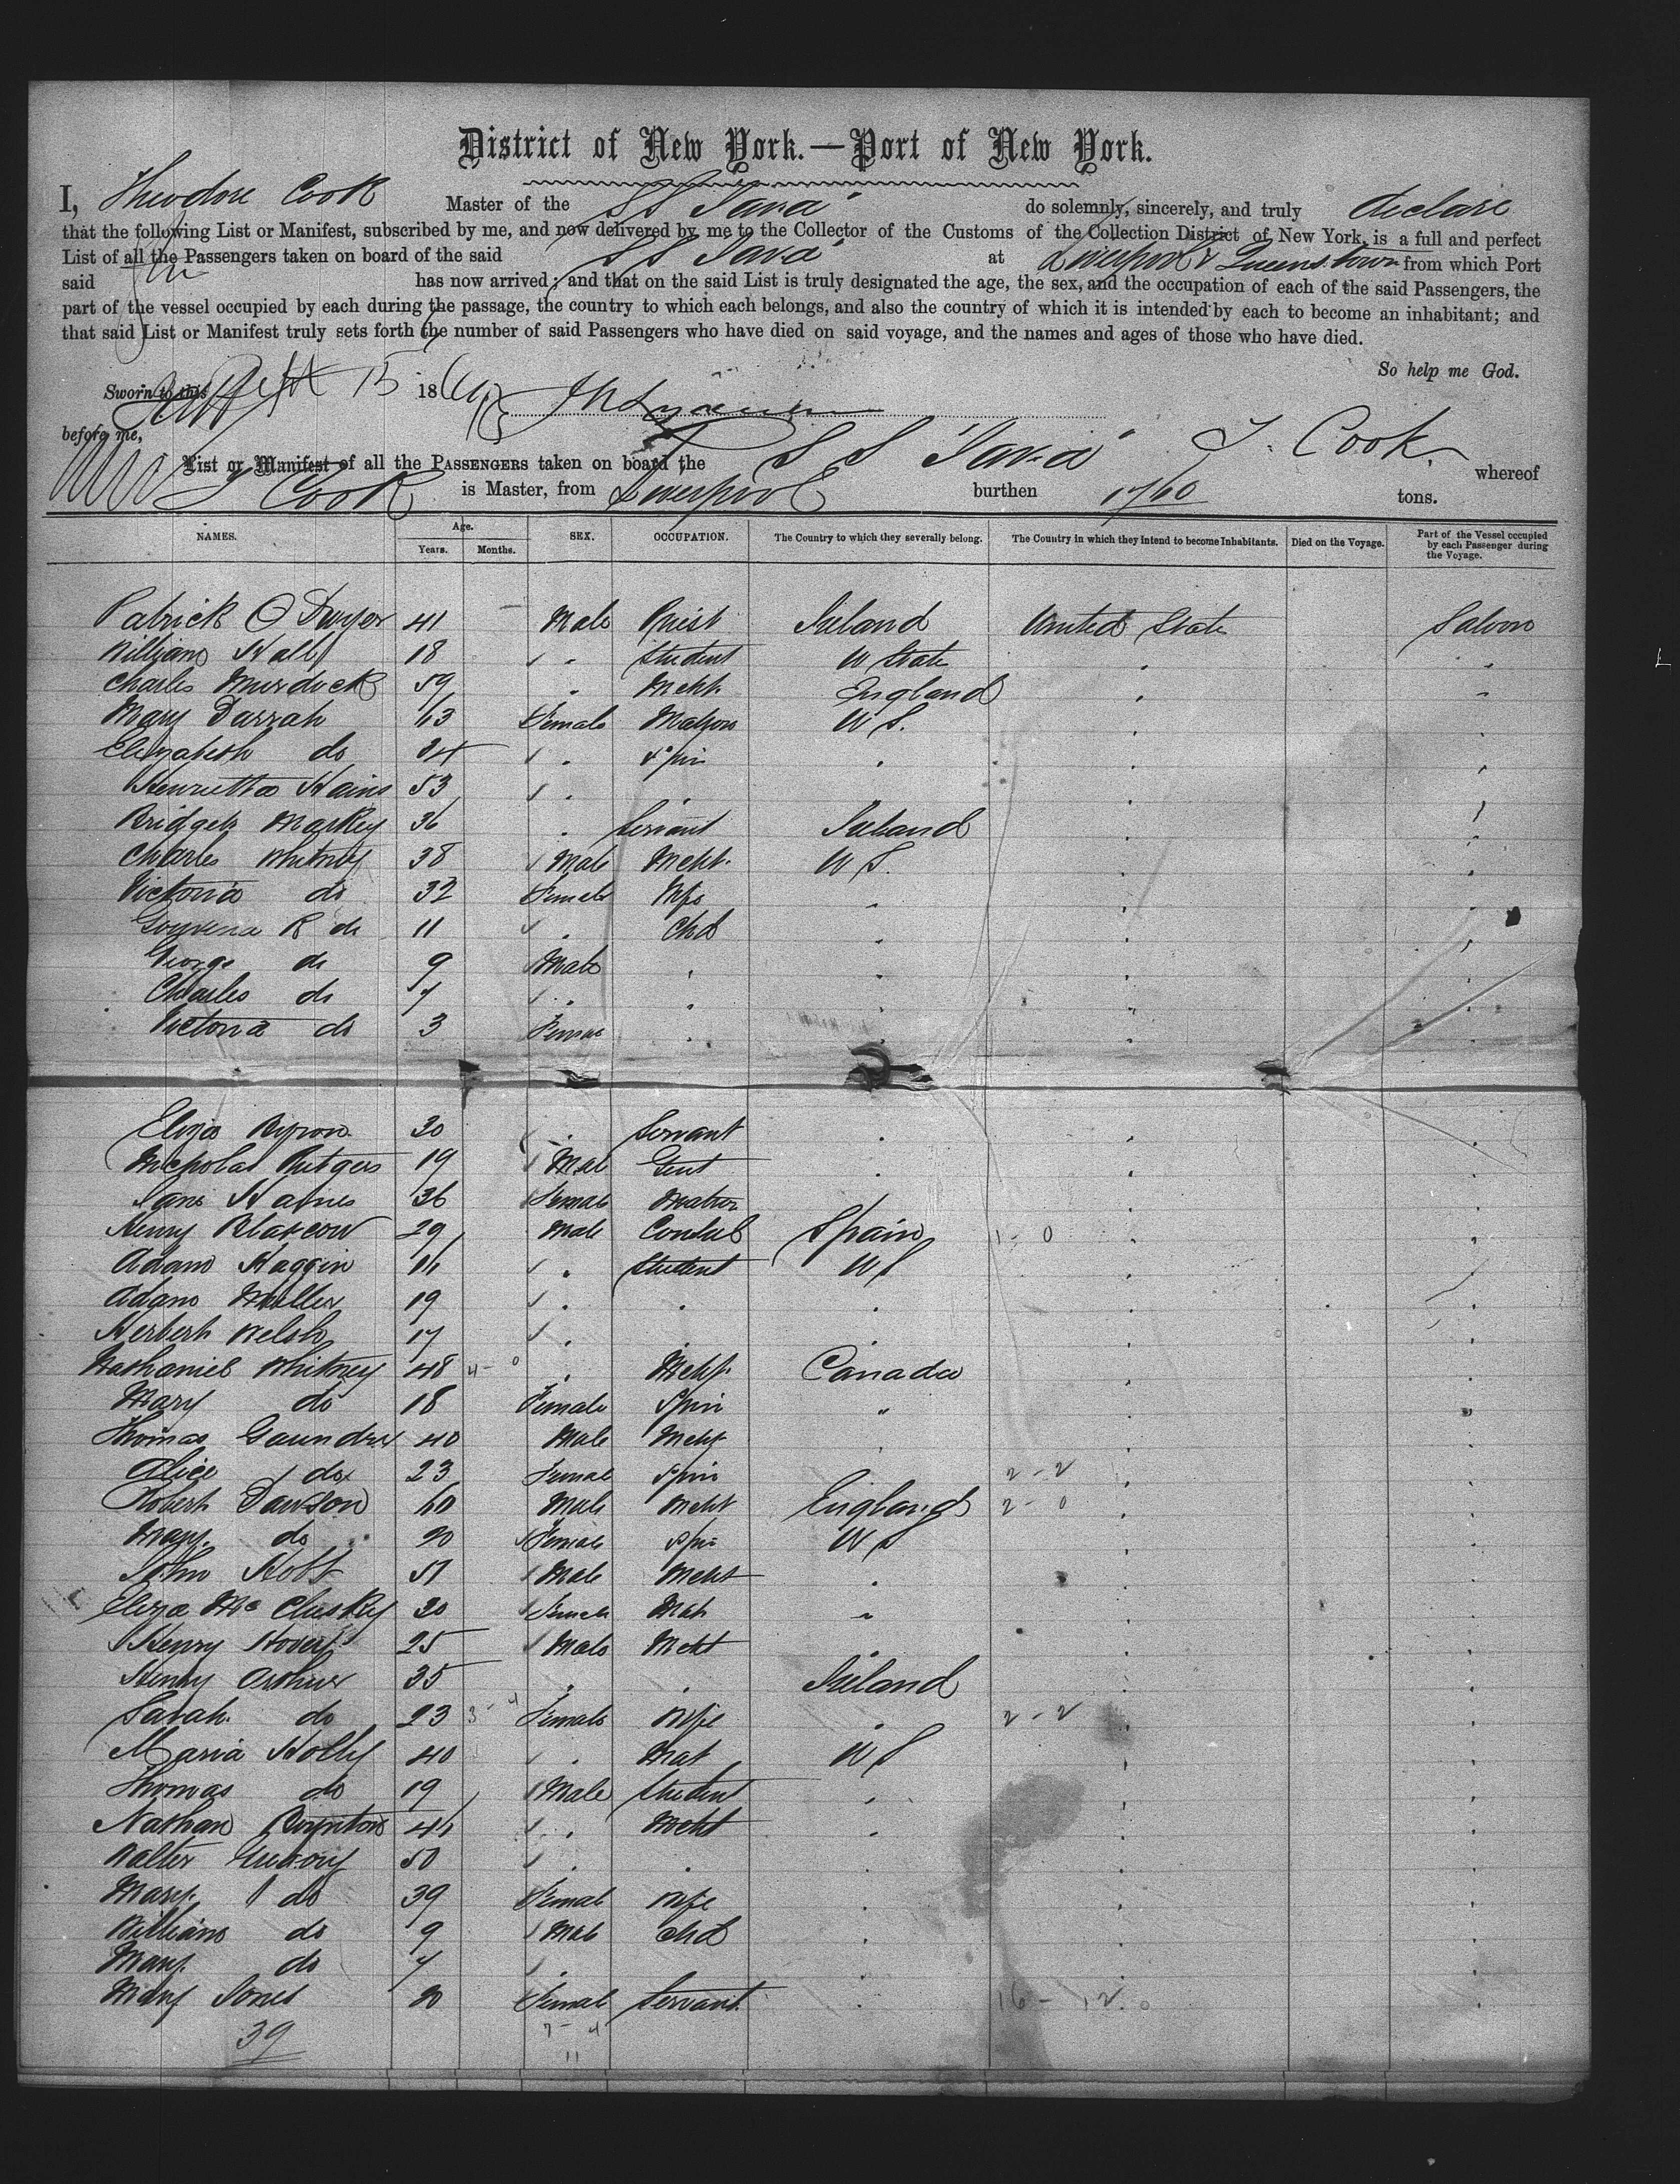 District of New York.—Port of New York.
I, Theodore Cook Master of the SS "Java" do solemnly, sincerely, and truly declare
that the following List or Manifest, subscribed by me, and now delivered by me to the Collector of the Customs of the Collection District of New York, is a full and perfect
List of all the Passengers taken on board of the said SS "Java" at Liverpool & Queenstown from which Port
said has now arrived; and that on the said List is truly designated the age, the sex, and the occupation of each of the said Passengers, the
part of the vessel occupied by each during the passage, the country to which each belongs, and also the country of which it is intended by each to become an inhabitant; and
that said List or Manifest truly sets forth the number of said Passengers who have died on said voyage, and the names and ages of those who have died.
So help me God.
Sworn to this Sept 15 186
before me, T. Cook
List or Manifest of all the PASSENGERS taken on board the SS "Java" whereof
T Cook is Master, from Liverpool burthen 1760 tons.
NAMES. Age. Years. Months. SEX. OCCUPATION. The Country to which they severally belong. The Country in which they intend to become Inhabitants. Died on the Voyage. Part of the Vessel occupied by each Passenger during the Voyage.
Patrick O Dwyer 41 - Male Priest Ireland United State Saloon
William Hall 18 " Student U State " "
Charles Murdock 59 " Mcht England " "
Mary Darrah 63 Female Matron U S. " "
Elizabeth do 24 " Spin " " "
Henrietta Hains 53 " " " " "
Bridget Markey 36 " Servant Ireland " "
Charles Whitney 38 Male Mcht U S. " "
Victoria do 32 Female Wife " " "
R do 11 " Chd " " "
George do 9 Male " " " "
Charles do 7 " " " " "
Victoria do 3 Female " " " "
Eliza Byron 30 " Servant " " "
Nicholas Rutgers 19 Male Gent " " "
Jane Haines 36 Female Matron " "
Henry 29 Male Consul Spain 1-0 " "
Adam Haggin 16 " Student U S " "
Adam Muller 19 " " " " "
Herbert Welsh 17 " " " " "
Nathaniel Whitney 48 4-0 " Mcht Canada " "
Mary do 18 Female Spin " " "
Thomas 40 Male Mcht " " "
Alice do 23 Female Spin 2-2 " "
Robert Dawson 60 Male Mcht England 2-0 " "
Mary do 20 Female Spin U S " "
John 51 Male Mcht " " "
Eliza Mc Cluskey 30 Female Mat " " "
Henry 25 Male Mcht " " "
Henry Arthur 35 " " Ireland " "
Sarah do 23 3-4 Female Wife " 2-2 " "
Maria Holly 40 " Mat U S " "
Thomas do 19 Male Student " " "
Nathan Boynton 46 " Mcht " " "
Walter Gregory 50 " " " " "
Mary do 39 Female Wife " " "
William do 9 Male Chd " " "
Mary do 7 " " " "
Mary Jones 20 Female Servant " 16-12 " "
39 7-4
11